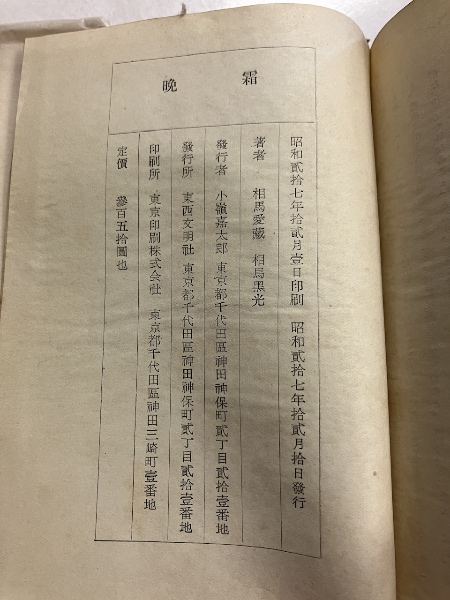 晩霜
昭和貳拾七年拾貳月壹日印刷 昭和貳拾七年拾貳月拾日發行
著者 相馬愛藏 相馬黑光
發行者 小嶺嘉太郎 東京都千代田區神田神保町貳丁目貳拾壹番地
發行所 東西文明社 東京都千代田區神田神保町貳丁目貳拾壹番地
印刷所 東京印刷株式会社 東京都千代田區神田三崎町壹番地
定價 參百五拾圓也